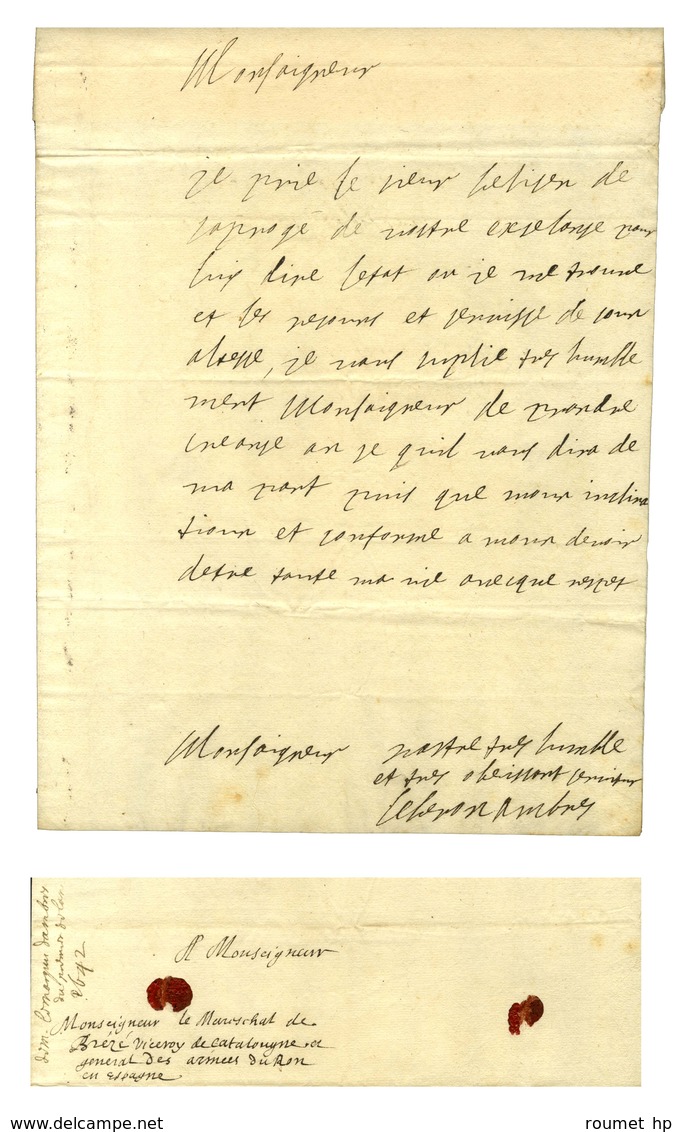 Monsaigneur
je prie le sieur de
de vostre exselanse pour
luy dire letat ou je me trouve
et les et de vour
altesse, je vous suplie tres humble
ment Monsaigneur de prandre
creanse an se quil vous dira de
ma part puis que mour inclina
tiour et conforme a mour devoir
detre toute ma vie avecque respet
Monsaigneur vostre tres humble
et tres obeissant serviteur
ambres
A Monseigneur
Monseigneur le Mareschal de
Brézé Viceroy de Catalougne et
general Des armées du Roy
en espagne
1642
www.delcampe.net
roumet hp